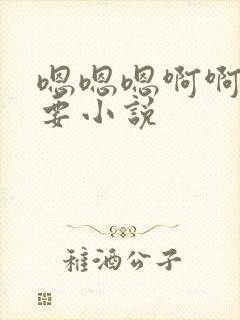 嗯嗯嗯啊啊
要小説
稚酒公子